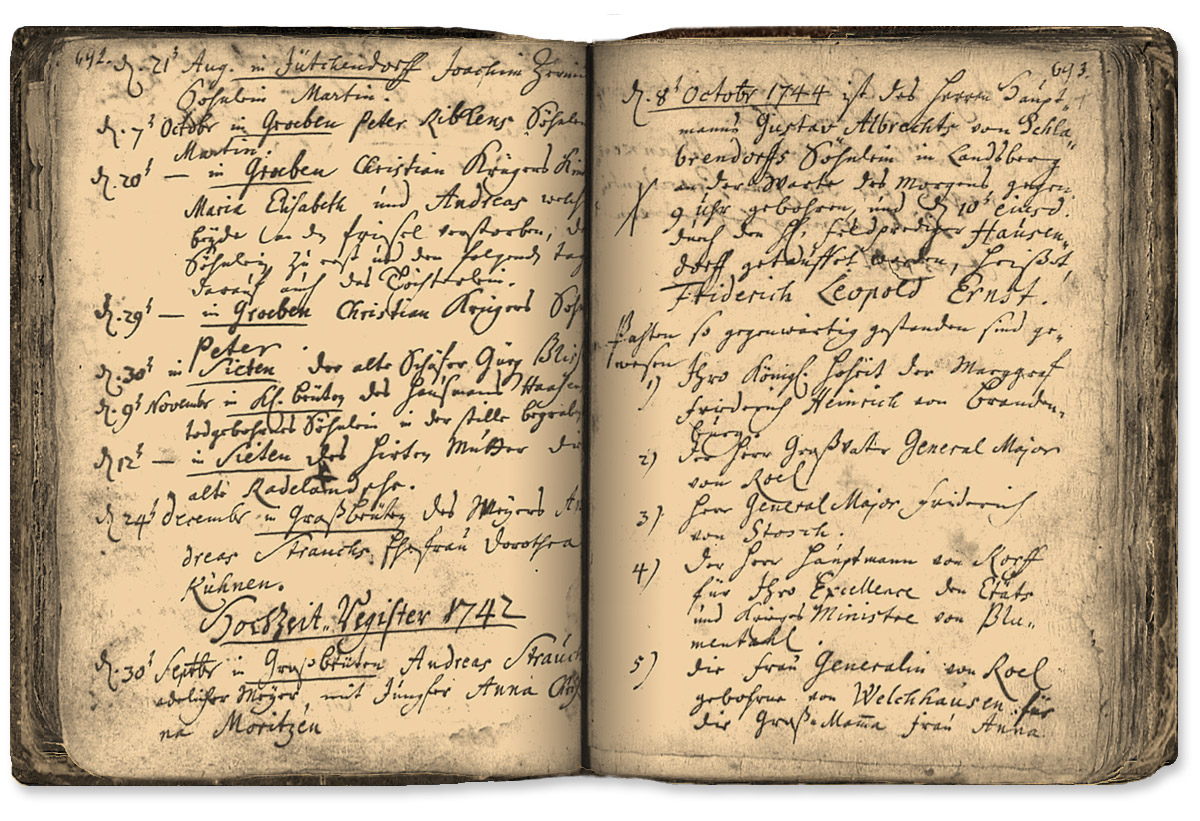 692.
d. 21t Aug. in Jütchendorff Joachim
Söhnlein Martin.
d. 7t Octobr in Groeben Peter Ribkens Söhnlein
Martin.
d. 20t — in Groeben Christian Krügers
Maria Elisabeth und Andreas welche
beyde an den frisel verstorben, d
Söhnlein zu erst und den folgends tag
darauf auch das Töchterlein.
d. 29t — in Groeben Christian Krügers Söh
Peter.
d. 30t in Sieten der alte Schäfer Gürg
d. 9t Novembr in Kl. beuten des Haußmanns Haasen
todgebohrnes Söhnlein in der stille begraben
d. 12t — in Sieten des Hirten Mutter die
alte Radelandsche.
d. 24t Decembr in Großbeuten des Meyers An
dreas Strauchs Ehefrau Dorothea
Kühnen.
Hochzeit-Register 1742
d. 30t Septbr in Großbeuten Andreas Strauch
adelicher Meyer mit Jungfer Anna
na Moritzen
693.
d. 8t Octobr 1744 ist des Herren Haupt-
manns Gustav Albrechts von Schla-
brendorffs Söhnlein in Landsberg
an der Warte des Morgens gegen
9 Uhr gebohren, und d. 10t ejusd.
durch den H. Feldprediger Hausen-
dorff getauffet worden, heißet,
Friderich Leopold Ernst.
Pathen so gegenwärtig gestanden sind ge-
wesen
1) Ihro Königl. Hoheit der Marggraf
Friederich Heinrich von Branden-
burg.
2) Der Herr Großvater General Major
von Roel
3) Herr General Major Friderich
von Stosch.
4) Der Herr Hauptmann von Korff
für Ihro Excellence den Etats
und Krieges Ministre von Blu-
menthal
5) die Frau Generalin von Roel
gebohrne von Welchhausen für
die Groß-Mama Frau Anna